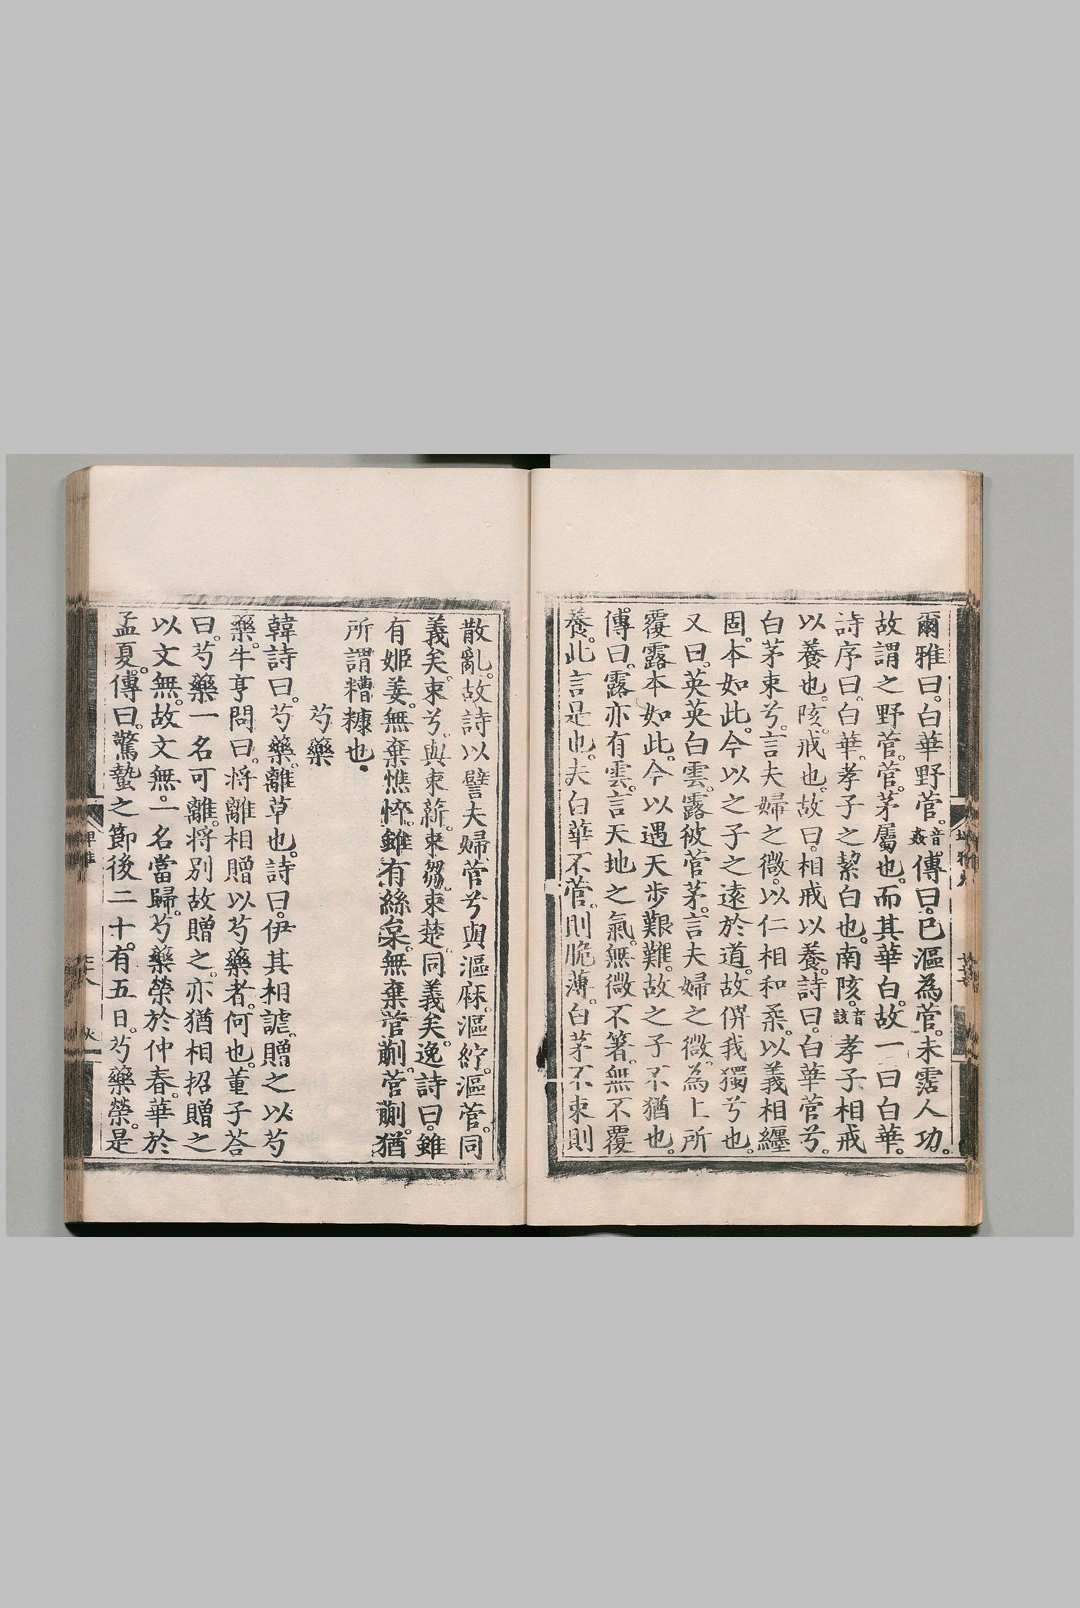 爾雅曰。白華野菅。音姦傳曰。已漚為菅。未霑人功。
故謂之野菅。菅。茅屬也。而其華白。故一曰白華。
詩序曰。白華。孝子之絜白也。南陔音該孝子相戒
以養也。陔。戒也。故曰。相戒以養。詩曰。白華菅兮。
白茅束兮。言夫婦之微。以仁相和柔。以義相纒
固。本如此。今以之子之遠於道。故俾我獨兮也。
又曰。英英白雲。露彼菅茅。言夫婦之微。為上所
覆露本如此。今以遇天步艱難。故之子不猶也。
傳曰。露亦有雲。言天地之氣。無微不箸。無不覆
養。此言是也。夫白華不菅。則脆薄。白茅不束則
散亂。故詩以譬夫婦菅兮與漚麻。漚紵。漚菅。同
義矣。束兮。與束薪。束蒭。束楚。同義矣。逸詩曰。雖
有姬姜。無棄憔悴。雖有絲枲。無棄菅蒯。菅蒯。猶
所謂糟糠也。
芍藥
韓詩曰。芍藥。離草也。詩曰。伊其相謔。贈之以芍
藥。牛亨問曰。将離相贈以芍藥者。何也。董子荅
曰。芍藥一名可離。將別故贈之。亦猶相招贈之
以文無。故文無。一名當歸。芍藥榮於仲春。華於
孟夏。傳曰。驚蟄之節後二十有五日。芍藥榮。是